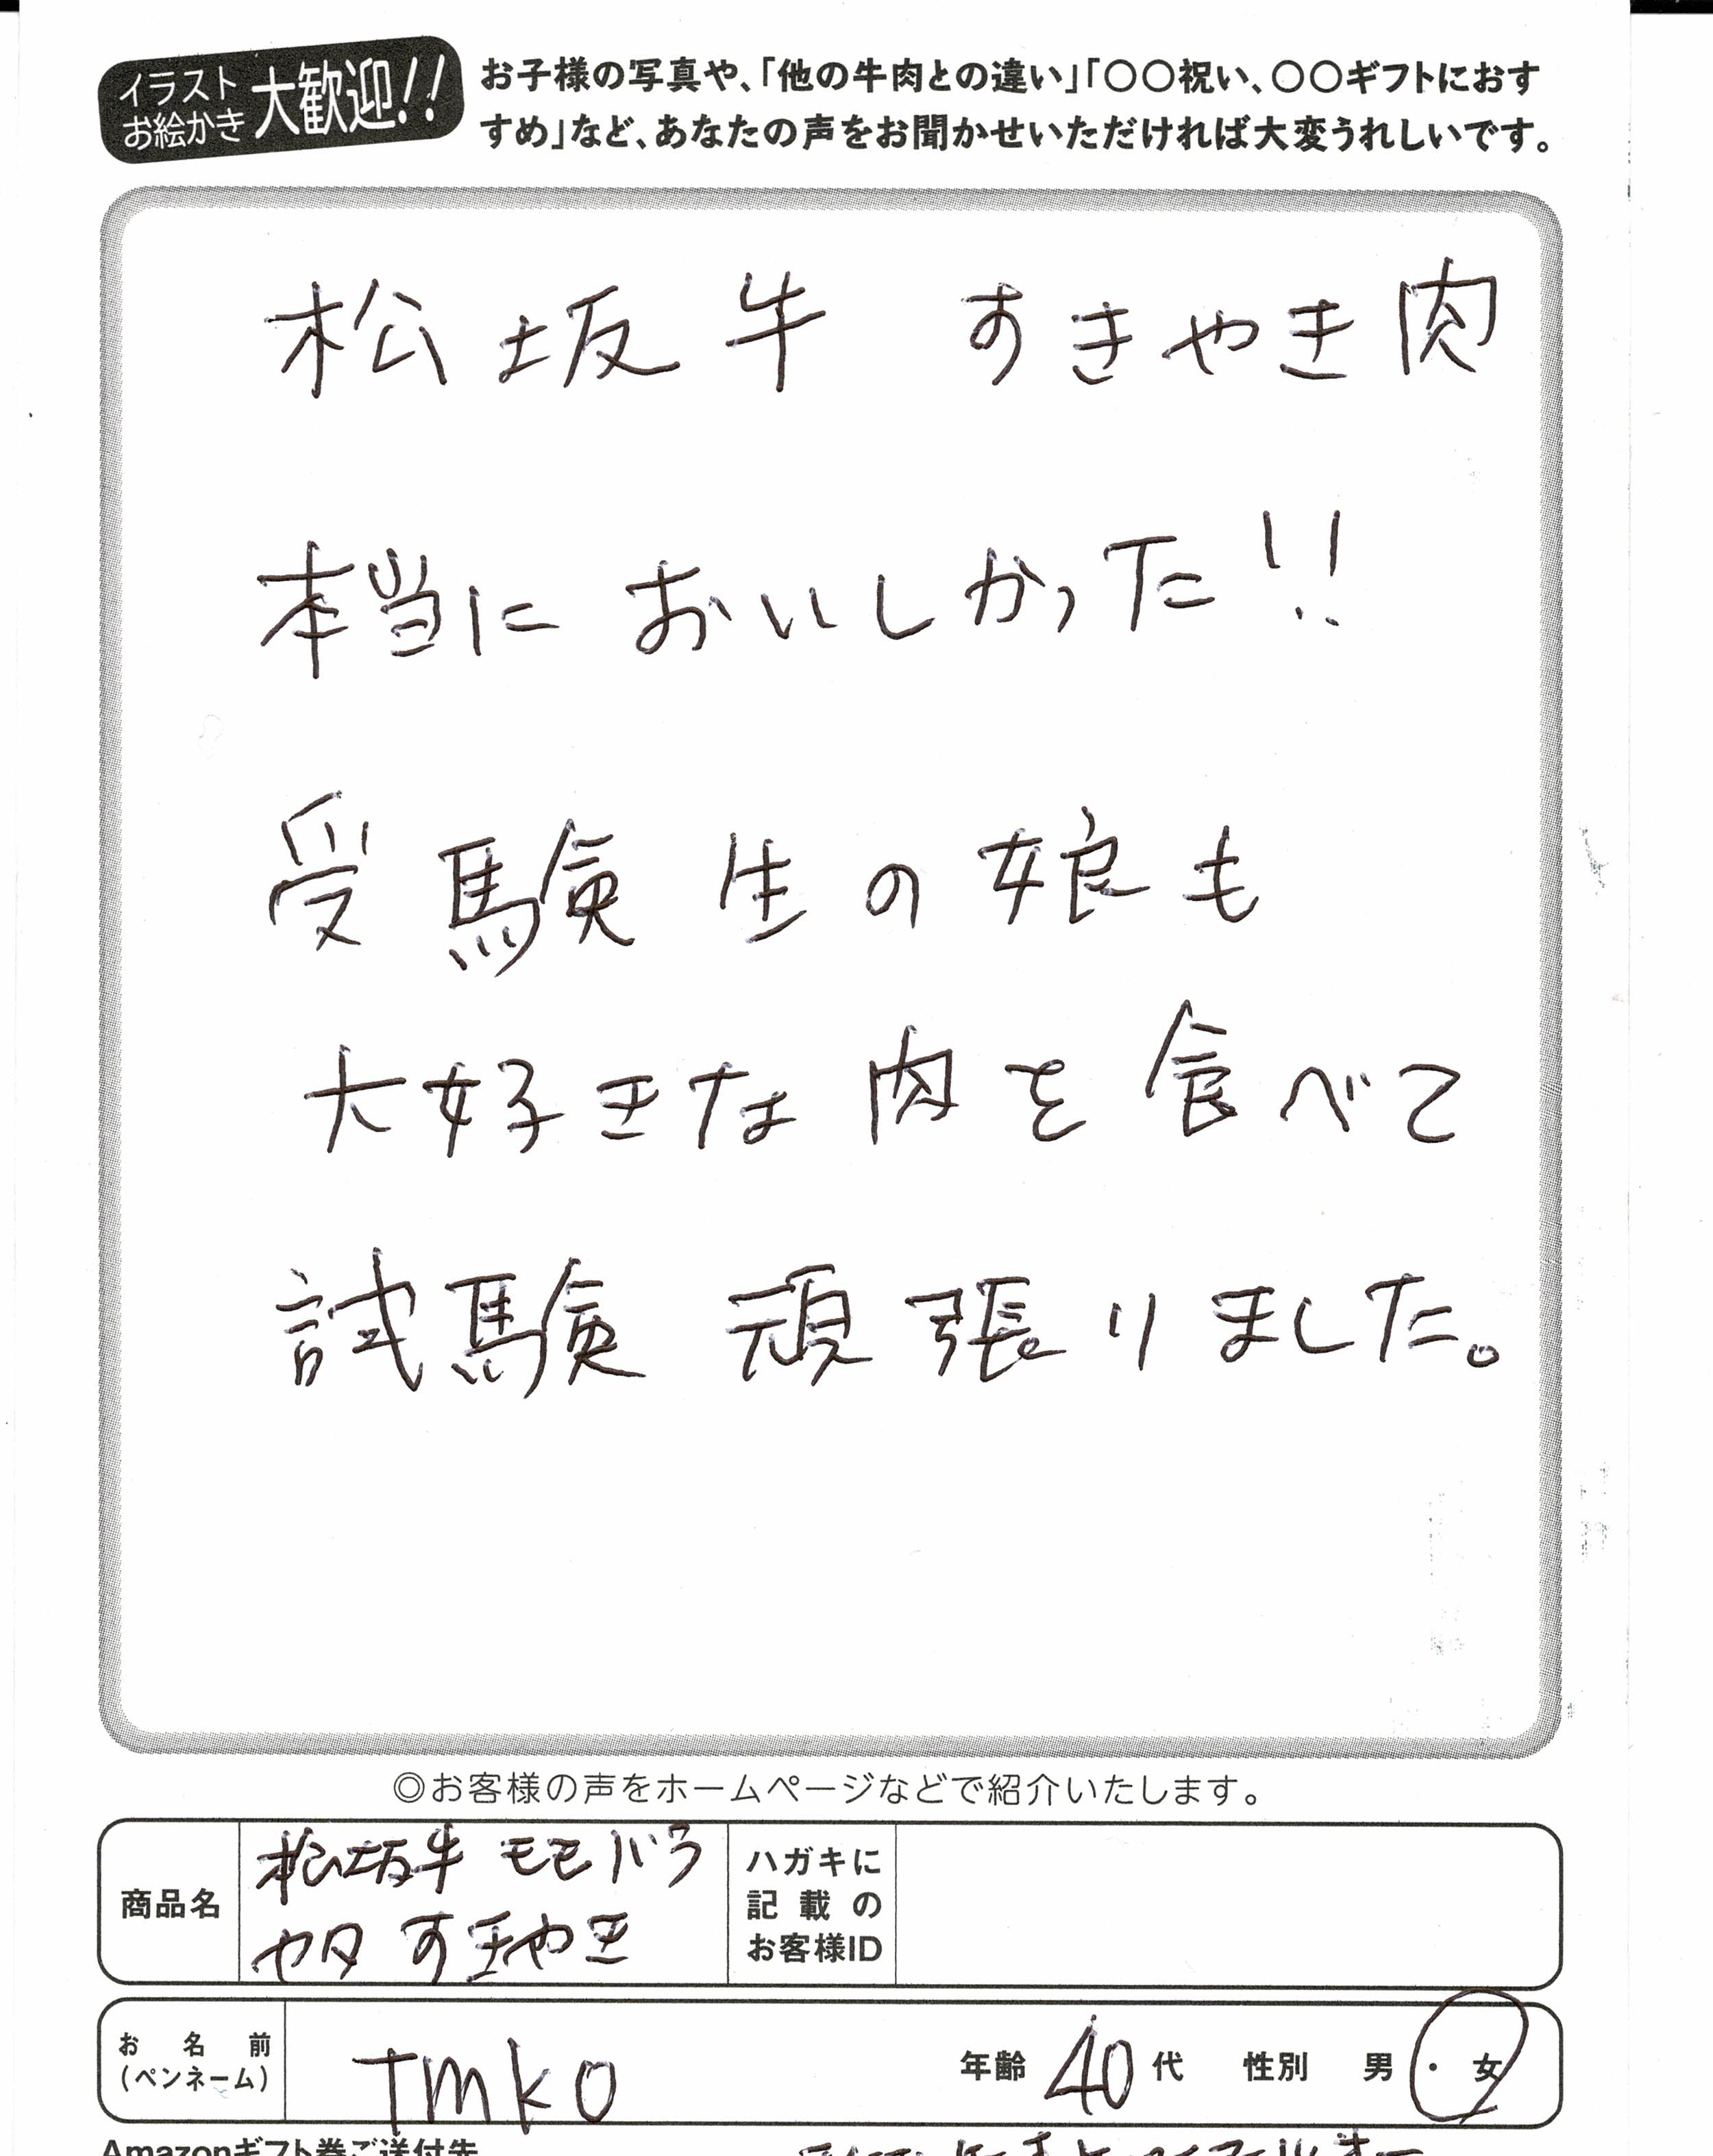 イラスト
お絵かき
大歓迎!!
お子様の写真や、「他の牛肉との違い」「〇〇祝い、〇〇ギフトにおす
すめ」など、あなたの声をお聞かせいただければ大変うれしいです。
松坂牛 すきやき肉
本当に おいしかった!!
受験生の娘も
大好きな肉を食べて
試験 頑張りました。
◎お客様の声をホームページなどで紹介いたします。
商品名
松坂牛 モモバラ
カタ すきやき
ハガキに
記載の
お客様ID
お名前
(ペンネーム)
TMKO
年齢 40 代 性別 男 ・ 女
Amazonギフト券ご送付先